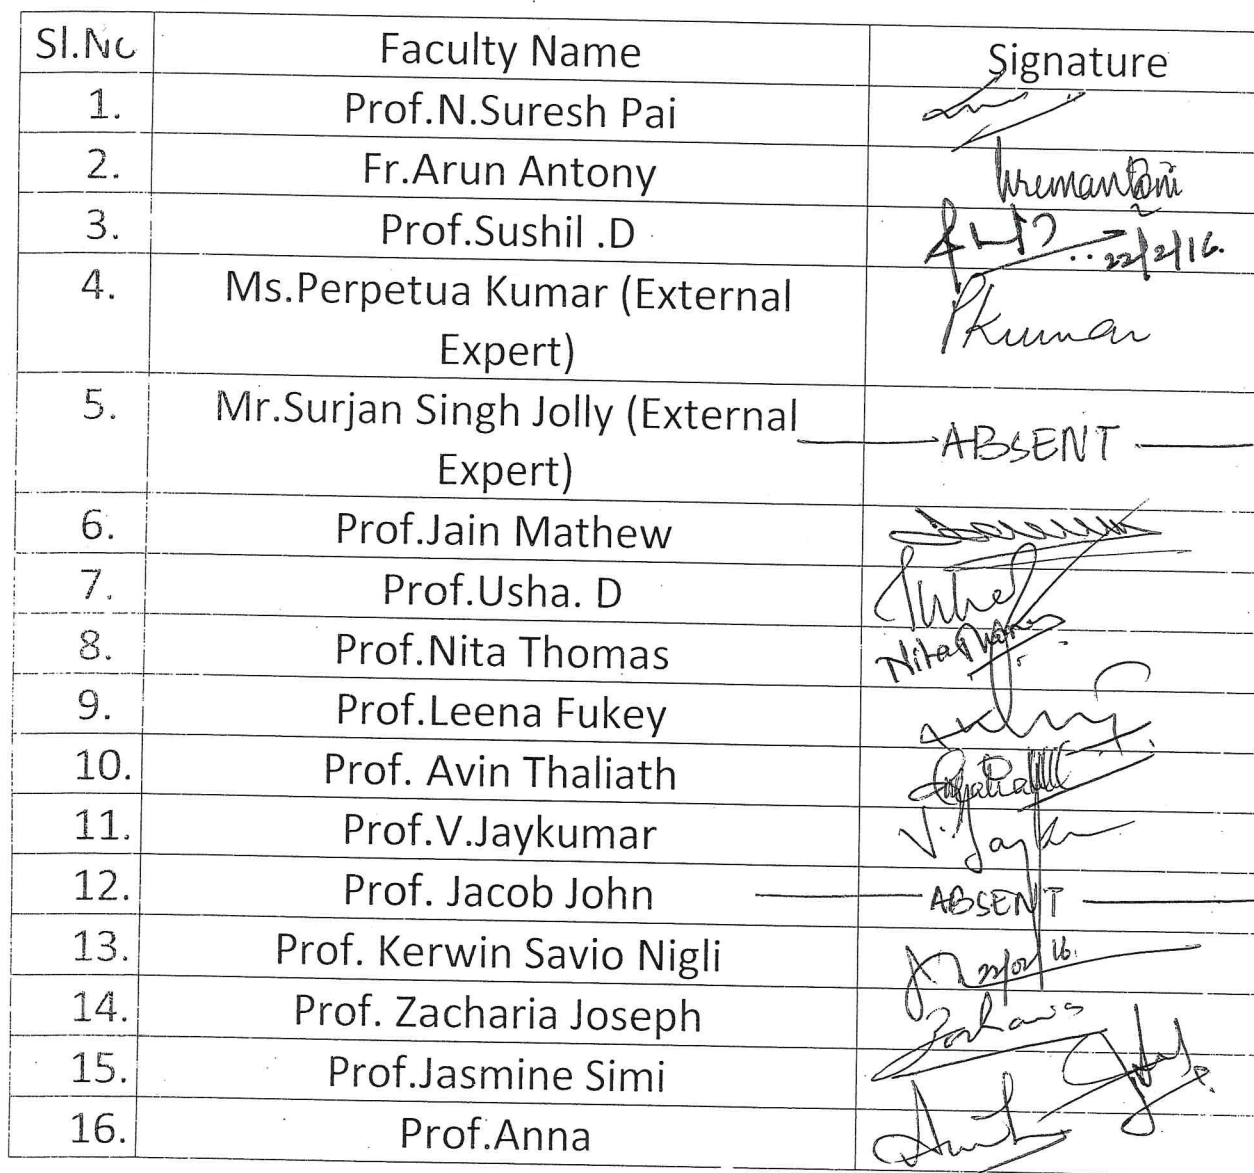 Sl.No Faculty Name Signature
1. Prof.N.Suresh Pai
2. Fr.Arun Antony
3. Prof.Sushil .D 22/2/16.
4. Ms.Perpetua Kumar (External PKumar
Expert)
5. Mr.Surjan Singh Jolly (External ABSENT
Expert)
6. Prof.Jain Mathew
7. Prof.Usha. D
8. Prof.Nita Thomas Nita Thomas
9. Prof.Leena Fukey
10. Prof. Avin Thaliath
11. Prof.V.Jaykumar V.Jayk
12. Prof. Jacob John ABSENT
13. Prof. Kerwin Savio Nigli 22/02/16.
14. Prof. Zacharia Joseph
15. Prof.Jasmine Simi
16. Prof.Anna